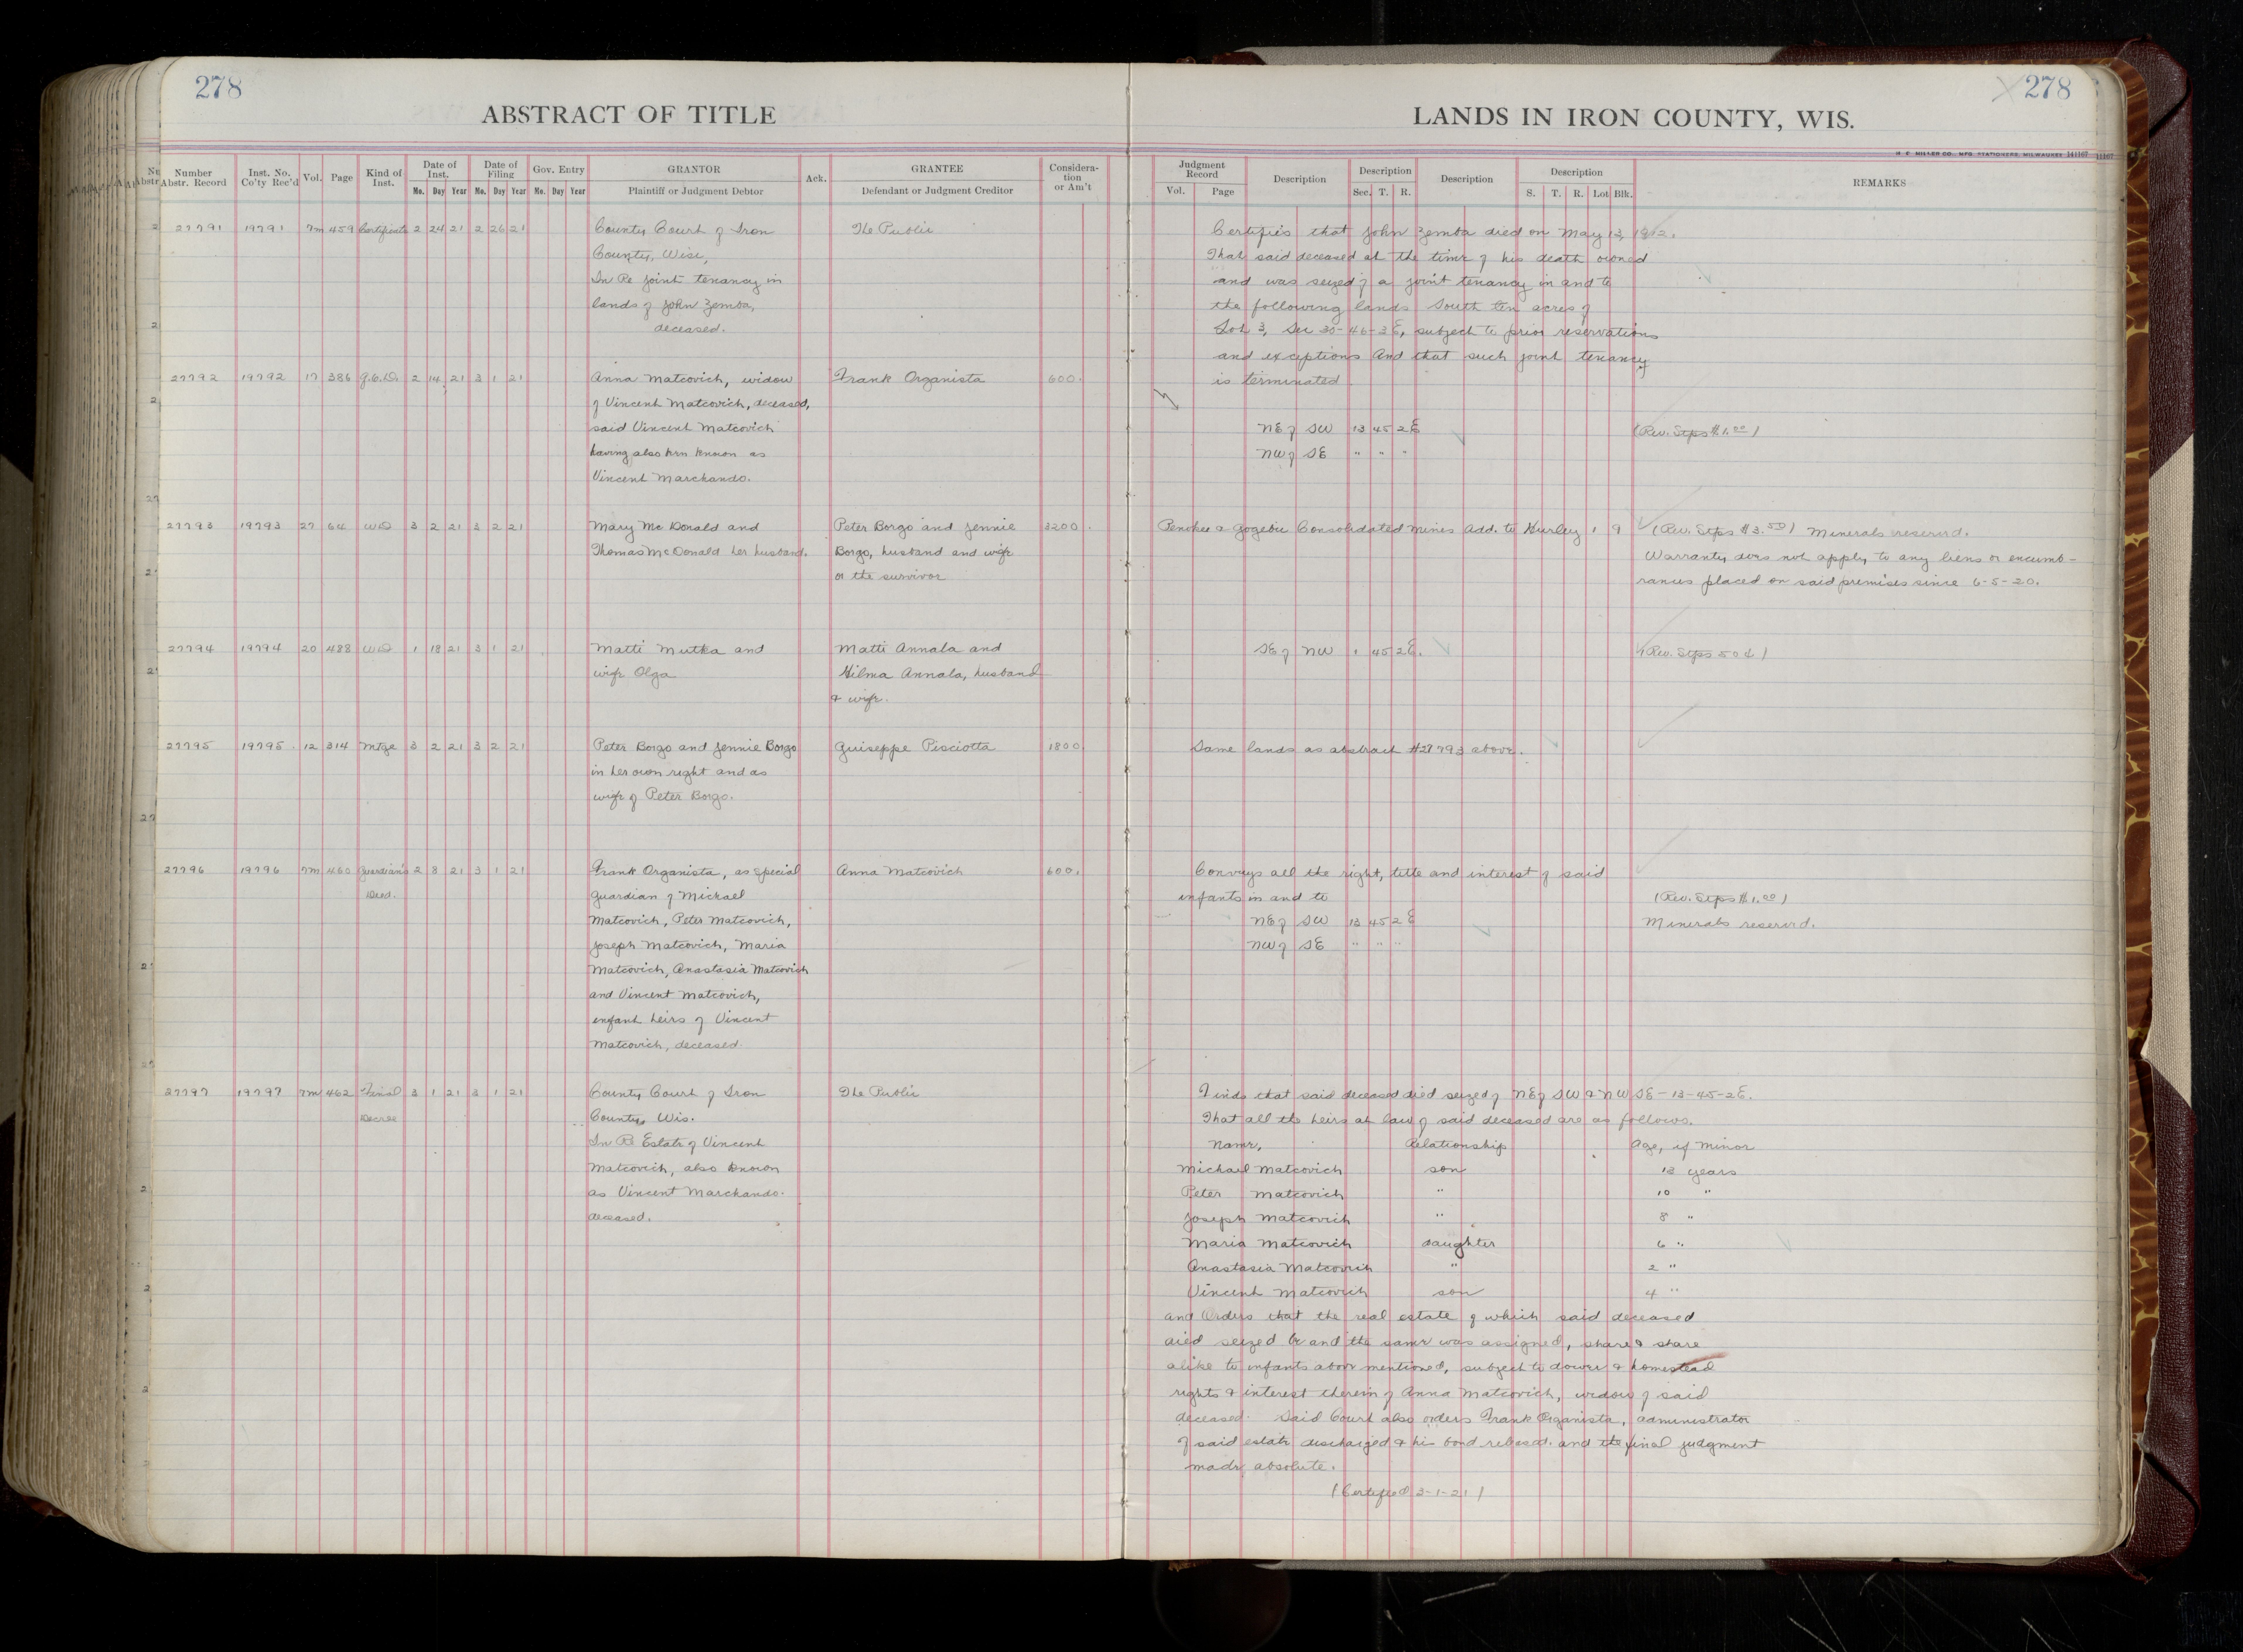 278
ABSTRACT OF TITLE
Number Abstr. Record | Inst. No. Co'ty Rec'd | Vol. | Page | Kind of Inst. | Date of Inst. Mo. Day Year | Date of Filing Mo. Day Year | Gov. Entry Mo. Day Year | GRANTOR Plaintiff or Judgment Debtor | Ack. | GRANTEE Defendant or Judgment Creditor | Considera-tion or Am't
27791 19791 7m 459 Certificate 2 24 21 2 26 21 County Court of Iron The Public
County, Wisc,
In Re joint tenancy in
lands of John Zemba,
deceased.
27792 19792 17 386 Q.C.D. 2 14 21 3 1 21 Anna Matcovich, widow Frank Organista 600.
of Vincent Matcovich, deceased,
said Vincent Matcovich
having also been known as
Vincent Marchando.
27793 19793 27 64 WD 3 2 21 3 2 21 Mary McDonald and Peter Borgo and Jennie 3200.
Thomas McDonald her husband. Borgo, husband and wife
or the survivor
27794 19794 20 488 WD 1 18 21 3 1 21 Matti Mutka and Matti Annala and
wife Olga Hilma Annala, husband
& wife.
27795 19795 12 314 Mtge 3 2 21 3 2 21 Peter Borgo and Jennie Borgo Guiseppe Pisciotta 1800
in her own right and as
wife of Peter Borgo.
27796 19796 7m 460 Guardian's 2 8 21 3 1 21 Frank Organista, as special Anna Matcovich 600.
Deed. guardian of Michael
Matcovich, Peter Matcovich,
Joseph Matcovich, Maria
Matcovich, Anastasia Matcovich
and Vincent Matcovich,
infant heirs of Vincent
Matcovich, deceased.
27797 19797 7m 462 Final 3 1 21 3 1 21 County Court of Iron The Public
Decree County, Wis.
In Re Estate of Vincent
Matcovich, also known
as Vincent Marchando.
deceased.
278
LANDS IN IRON COUNTY, WIS.
H. C. MILLER CO., MFG. STATIONERS, MILWAUKEE 141167
Judgment Record Vol. Page | Description | Description Sec. T. R. | Description | Description S. T. R. Lot Blk. | REMARKS
Certifies that John Zemba died on May 13, 1912.
That said deceased at the time of his death owned
and was seized of a joint tenancy in and to
the following lands South ten acres of
Lot 3, Sec 30-46-3E, subject to prior reservations
and exceptions And that such joint tenancy
is terminated
NE of SW 13 45 2E (Rev. Stps $1.00)
NW of SE " " "
Penokee & Gogebic Consolidated Mines Add. to Hurley 1 9 (Rev. Stps $3.50) Minerals reserved.
Warranty does not apply to any liens or encumb-
rances placed on said premises since 6-5-20.
SE of NW 1 45 2E. (Rev. Stps 50¢)
Same lands as abstract #27793 above.
Conveys all the right, title and interest of said
infants in and to (Rev. Stps $1.00)
NE of SW 13 45 2E Minerals reserved.
NW of SE " " "
Finds that said deceased died seized of NE of SW & NW SE-13-45-2E.
That all the heirs at law of said deceased are as follows.
Name, Relationship Age, if minor
Michael Matcovich son 13 years
Peter Matcovich " 10 "
Joseph Matcovich " 8 "
Maria Matcovich daughter 6 "
Anastasia Matcovich " 2 "
Vincent Matcovich son 4 "
and Orders that the real estate of which said deceased
died seized be and the same was assigned, share & share
alike to infants above mentioned, subject to dower & homestead
rights & interest therein of Anna Matcovich, widow of said
deceased. Said Court also orders Frank Organista, administrator
of said estate discharged & his bond released. and the final judgment
made absolute.
(Certified 3-1-21)